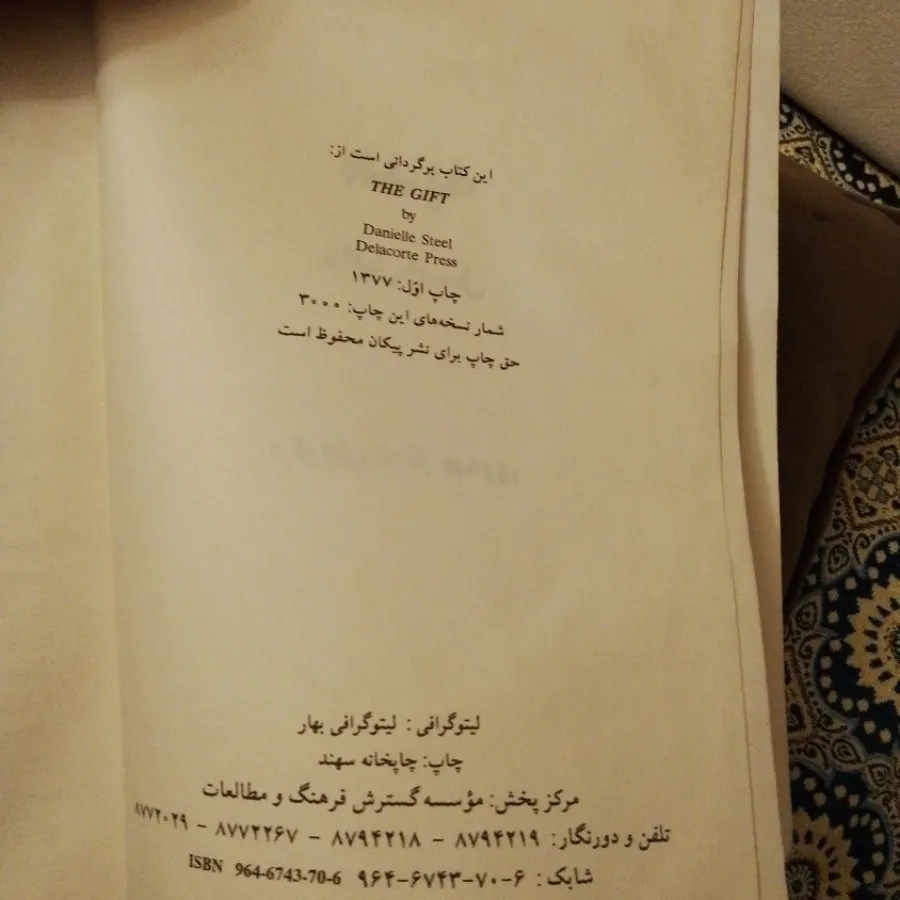 این کتاب برگردانی است از:
THE GIFT
by
Danielle Steel
Delacorte Press
چاپ اوّل: ۱۳۷۷
شمار نسخه‌های این چاپ: ۳۰۰۰
حق چاپ برای نشر پیکان محفوظ است
لیتوگرافی : لیتوگرافی بهار
چاپ: چاپخانه سهند
مرکز پخش: مؤسسه گسترش فرهنگ و مطالعات
تلفن و دورنگار: ۸۷۹۴۲۱۹ – ۸۷۹۴۲۱۸ – ۸۷۷۲۲۶۷ – ۸۷۷۲۰۲۹
شابک : ۶-۷۰-۶۷۴۳-۹۶۴ ISBN 964-6743-70-6